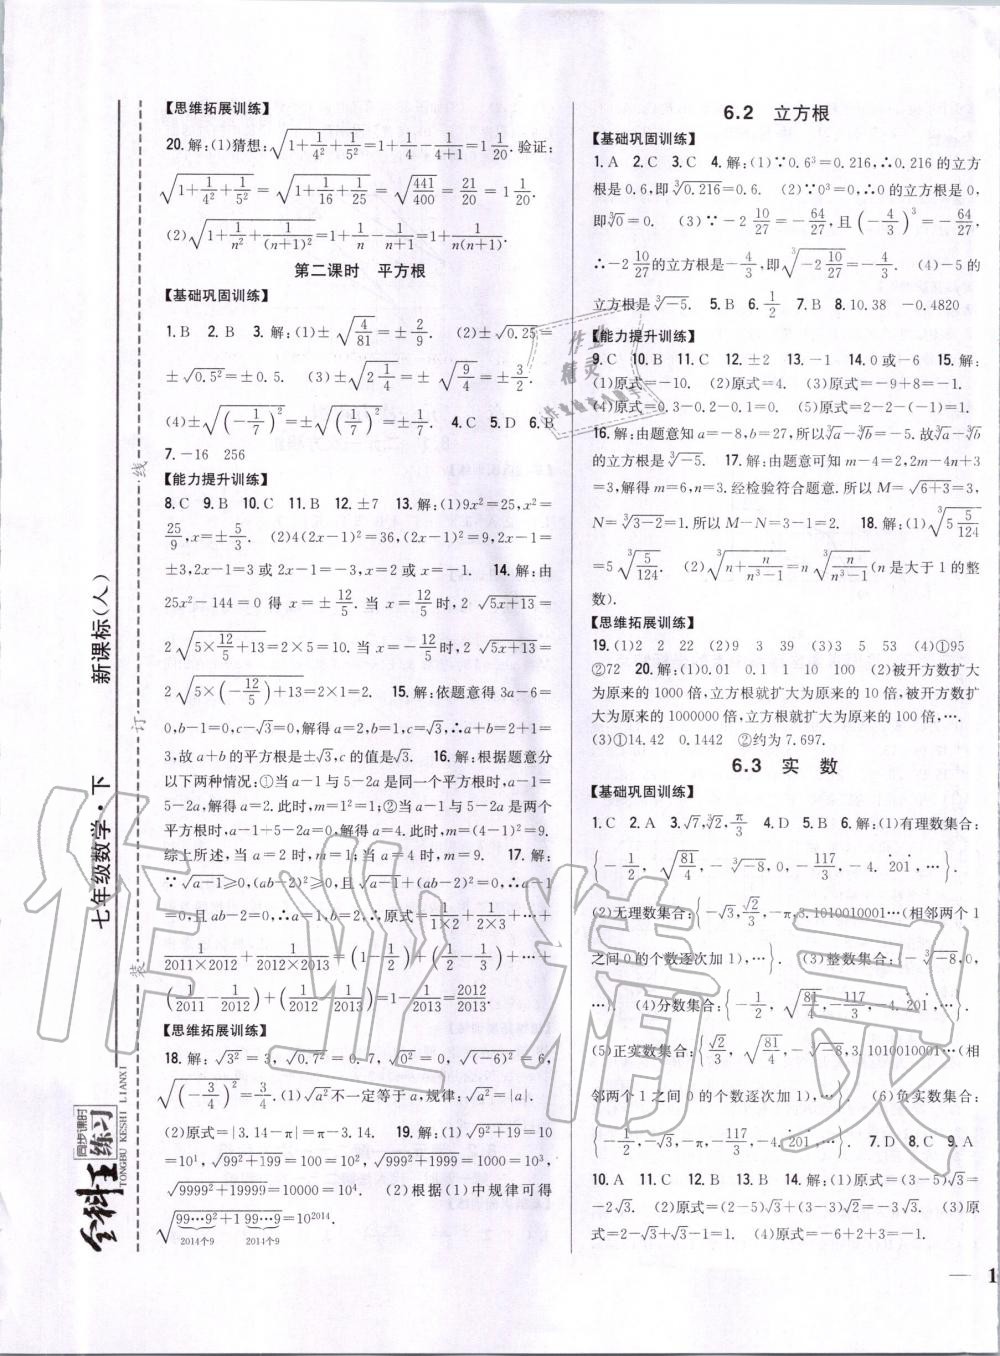 【思维拓展训练】
20.解:(1)猜想:√(1+1/4²+1/5²)=1+1/4-1/(4+1)=1 1/20.验证:
√(1+1/4²+1/5²)=√(1+1/16+1/25)=√(441/400)=21/20=1 1/20.
(2)√(1+1/n²+1/(n+1)²)=1+1/n-1/(n+1)=1+1/n(n+1).
第二课时 平方根
【基础巩固训练】
1.B 2.B 3.解:(1)±√(4/81)=±2/9. (2)±√0.25=
±√0.5²=±0.5. (3)±√(2 1/4)=±√(9/4)=±3/2.
(4)±√(-1/7)²=±√(1/7)²=±1/7. 4.C 5.D 6.B
7.-16 256
【能力提升训练】
8.C 9.B 10.C 11.B 12.±7 13.解:(1)9x²=25,x²=
25/9,x=±5/3. (2)4(2x-1)²=36,(2x-1)²=9,2x-1=
±3,2x-1=3或2x-1=-3,x=2或x=-1. 14.解:由
25x²-144=0得x=±12/5.当x=12/5时,2√(5x+13)=
2√(5×12/5+13)=2×5=10.当x=-12/5时,2√(5x+13)=
2√(5×(-12/5)+13)=2×1=2. 15.解:依题意得3a-6=
0,b-1=0,c-√3=0,解得a=2,b=1,c=√3,∴a+b=2+1=
3,故a+b的平方根是±√3,c的值是√3. 16.解:根据题意分
以下两种情况:①当a-1与5-2a是同一个平方根时,a-1=
5-2a,解得a=2.此时,m=1²=1;②当a-1与5-2a是两个
平方根时,a-1+5-2a=0,解得a=4.此时,m=(4-1)²=9.
综上所述,当a=2时,m=1;当a=4时,m=9. 17.解:
∵√(a-1)≥0,(ab-2)²≥0,且√(a-1)+(ab-2)²=0,∴a-1
=0,且ab-2=0,∴a=1,b=2,∴原式=1/(1×2)+1/(2×3)+…+
1/(2011×2012)+1/(2012×2013)=(1-1/2)+(1/2-1/3)+…+
(1/2011-1/2012)+(1/2012-1/2013)=1-1/2013=2012/2013.
【思维拓展训练】
18.解:√3²=3,√0.7²=0.7,√0²=0,√(-6)²=6,
√(-3/4)²=3/4. (1)√a²不一定等于a,规律:√a²=|a|.
(2)原式=|3.14-π|=π-3.14. 19.解:(1)√(9²+19)=10
=10¹,√(99²+199)=100=10²,√(999²+1999)=1000=10³,
√(9999²+19999)=10000=10⁴. (2)根据(1)中规律可得
√(99…9²+1 99…9)=10²⁰¹⁴.
2014个9 2014个9
6.2 立方根
【基础巩固训练】
1.A 2.C 3.C 4.解:(1)∵0.6³=0.216,∴0.216的立方
根是0.6,即∛0.216=0.6. (2)∵0³=0,∴0的立方根是0,
即∛0=0. (3)∵-2 10/27=-64/27,且(-4/3)³=-64/27,
∴-2 10/27的立方根是-4/3,即∛(-2 10/27)=-4/3. (4)-5的
立方根是∛-5. 5.B 6.1/2 7.B 8.10.38 -0.4820
【能力提升训练】
9.C 10.B 11.C 12.±2 13.-1 14.0或-6 15.解:
(1)原式=-10. (2)原式=4. (3)原式=-9+8=-1.
(4)原式=0.3-0.2-0.1=0. (5)原式=2-2-(-1)=1.
16.解:由题意知a=-8,b=27,所以∛a-∛b=-5.故∛a-∛b
的立方根是∛-5. 17.解:由题意可知m-4=2,2m-4n+3
=3,解得m=6,n=3.经检验符合题意.所以M=√(6+3)=3,
N=∛(3-2)=1.所以M-N=3-1=2. 18.解:(1)∛(5 5/124)
=5∛(5/124). (2)∛(n+n/(n³-1))=n∛(n/(n³-1))(n是大于1的整
数).
【思维拓展训练】
19.(1)2 2 22 (2)9 3 39 (3)5 3 53 (4)①95
②72 20.解:(1)0.01 0.1 1 10 100 (2)被开方数扩大
为原来的1000倍,立方根就扩大为原来的10倍,被开方数扩
大为原来的1000000倍,立方根就扩大为原来的100倍,….
(3)①14.42 0.1442 ②约为7.697.
6.3 实 数
【基础巩固训练】
1.C 2.A 3.√7,∛2,π/3 4.D 5.B 6.解:(1)有理数集合:
{-1/2,√(81/4),-∛-8,0,-117/3,-4.2̇01̇,…}.
(2)无理数集合:{-√3,√2/3,-π,3.1010010001…(相邻两个1
之间0的个数逐次加1),…}. (3)整数集合:{-∛-8,0,
-117/3,…}. (4)分数集合:{-1/2,√(81/4),-4.2̇01̇,…}.
(5)正实数集合:{√2/3,√(81/4),-∛-8,3.1010010001…(相
邻两个1之间0的个数逐次加1),…}. (6)负实数集合:
{-1/2,-√3,-π,-117/3,-4.2̇01̇,…}. 7.D 8.C 9.A
10.A 11.C 12.B 13.B 14.解:(1)原式=(3-5)√3=
-2√3. (2)原式=(2-5)√3+(3-1)√2=-3√3+2√2. (3)原
式=2-√3+√3-1=1. (4)原式=-6+2+3=-1.
新课标(人)
七年级数学·下
全科王
同步课时
练习
TONGBU KESHI LIANXI
装 订 线
作业精灵
1